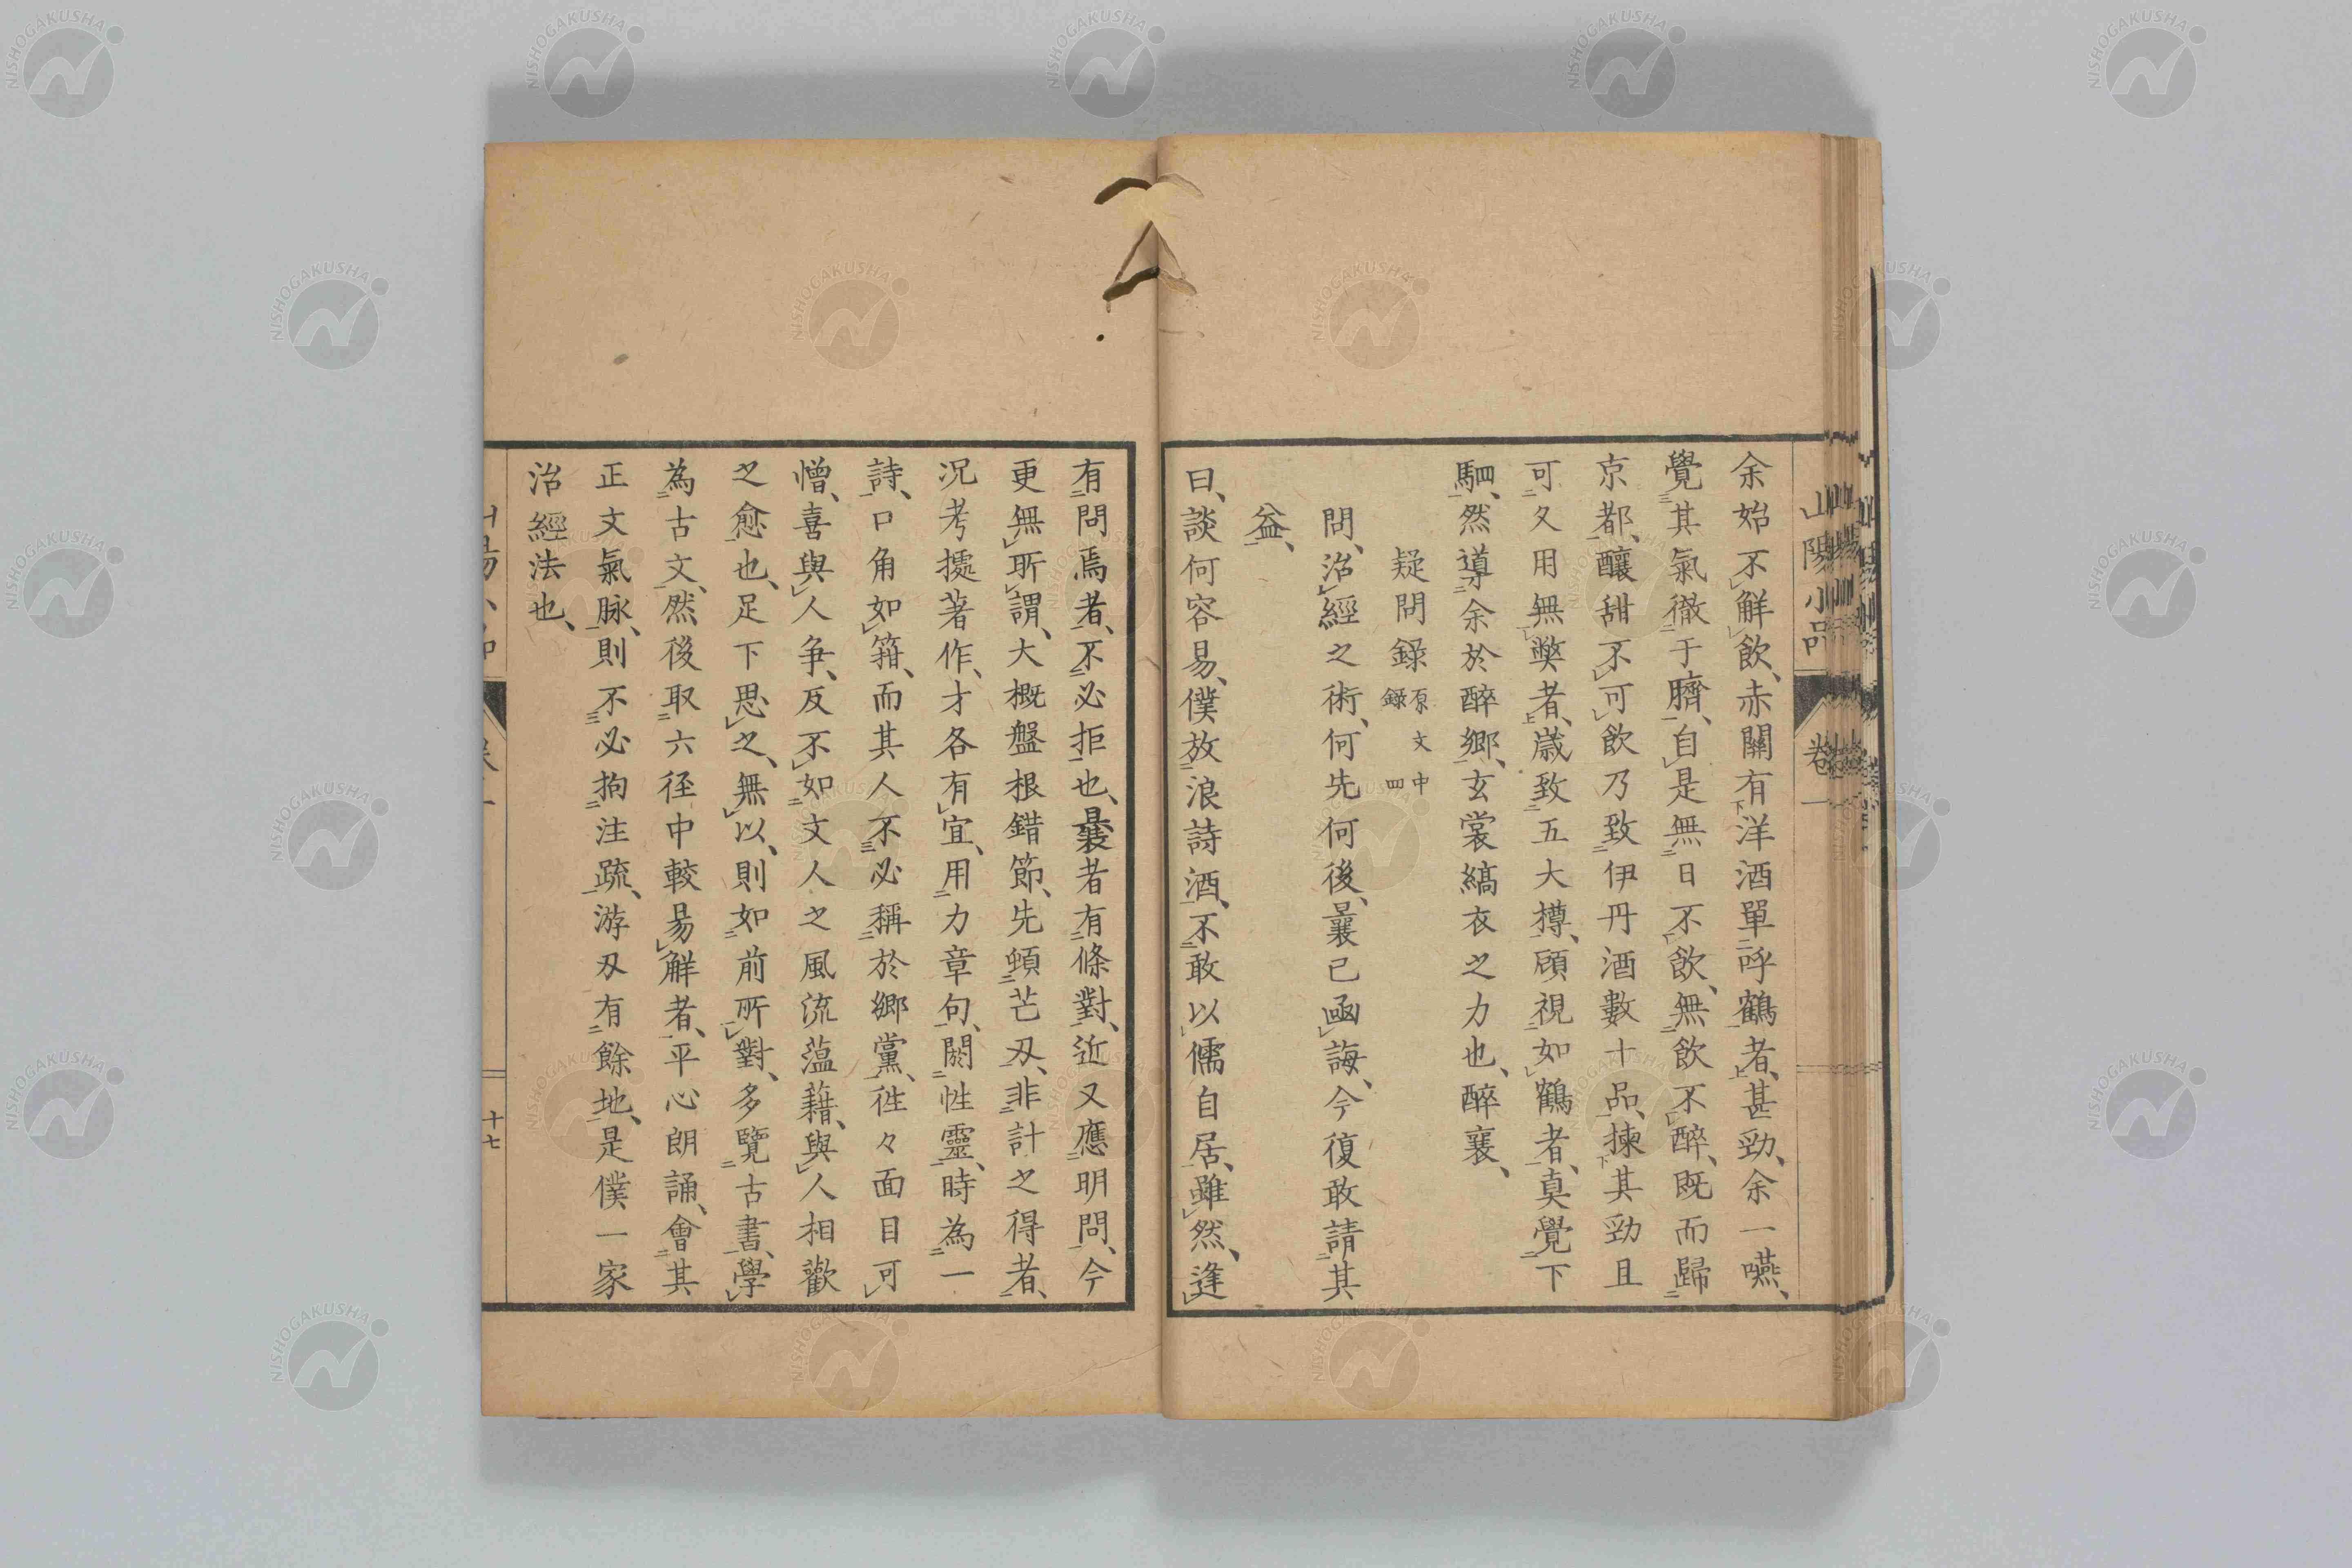 山陽小品 卷一
余始不解飲、赤關有洋酒單呼鶴者、甚勁、余一嚥、
覺其氣徹于臍、自是無日不飲、無飲不醉、既而歸
京都、釀甜不可飲乃致伊丹酒數十品、揀其勁且
可久用無獘者、歳致五大樽、頋視如鶴者、真覺下
駟、然導余於醉鄉、玄裳縞衣之力也、醉襄、
疑問錄 原文中錄四
問、治經之術、何先何後、曩已函誨、今復敢請其
益、
曰、談何容易、僕放浪詩酒、不敢以儒自居、雖然、逢
有問焉者、不必拒也、曩者有條對、近又應明問、今
更無所謂、大概盤根錯節、先頓芒刃、非計之得者、
況考據著作、才各有宜、用力章句、閼性靈、時為一
詩、口角如箝、而其人不必稱於鄉黨、徃々面目可
憎、喜與人争、反不如文人之風流蕰藉、與人相歡
之愈也、足下思之、無以、則如前所對、多覽古書、學
為古文、然後取六径中較易解者、平心朗誦、會其
正文氣脉、則不必拘注疏、游刃有餘地、是僕一家
治經法也、
十七
NISHOGAKUSHA